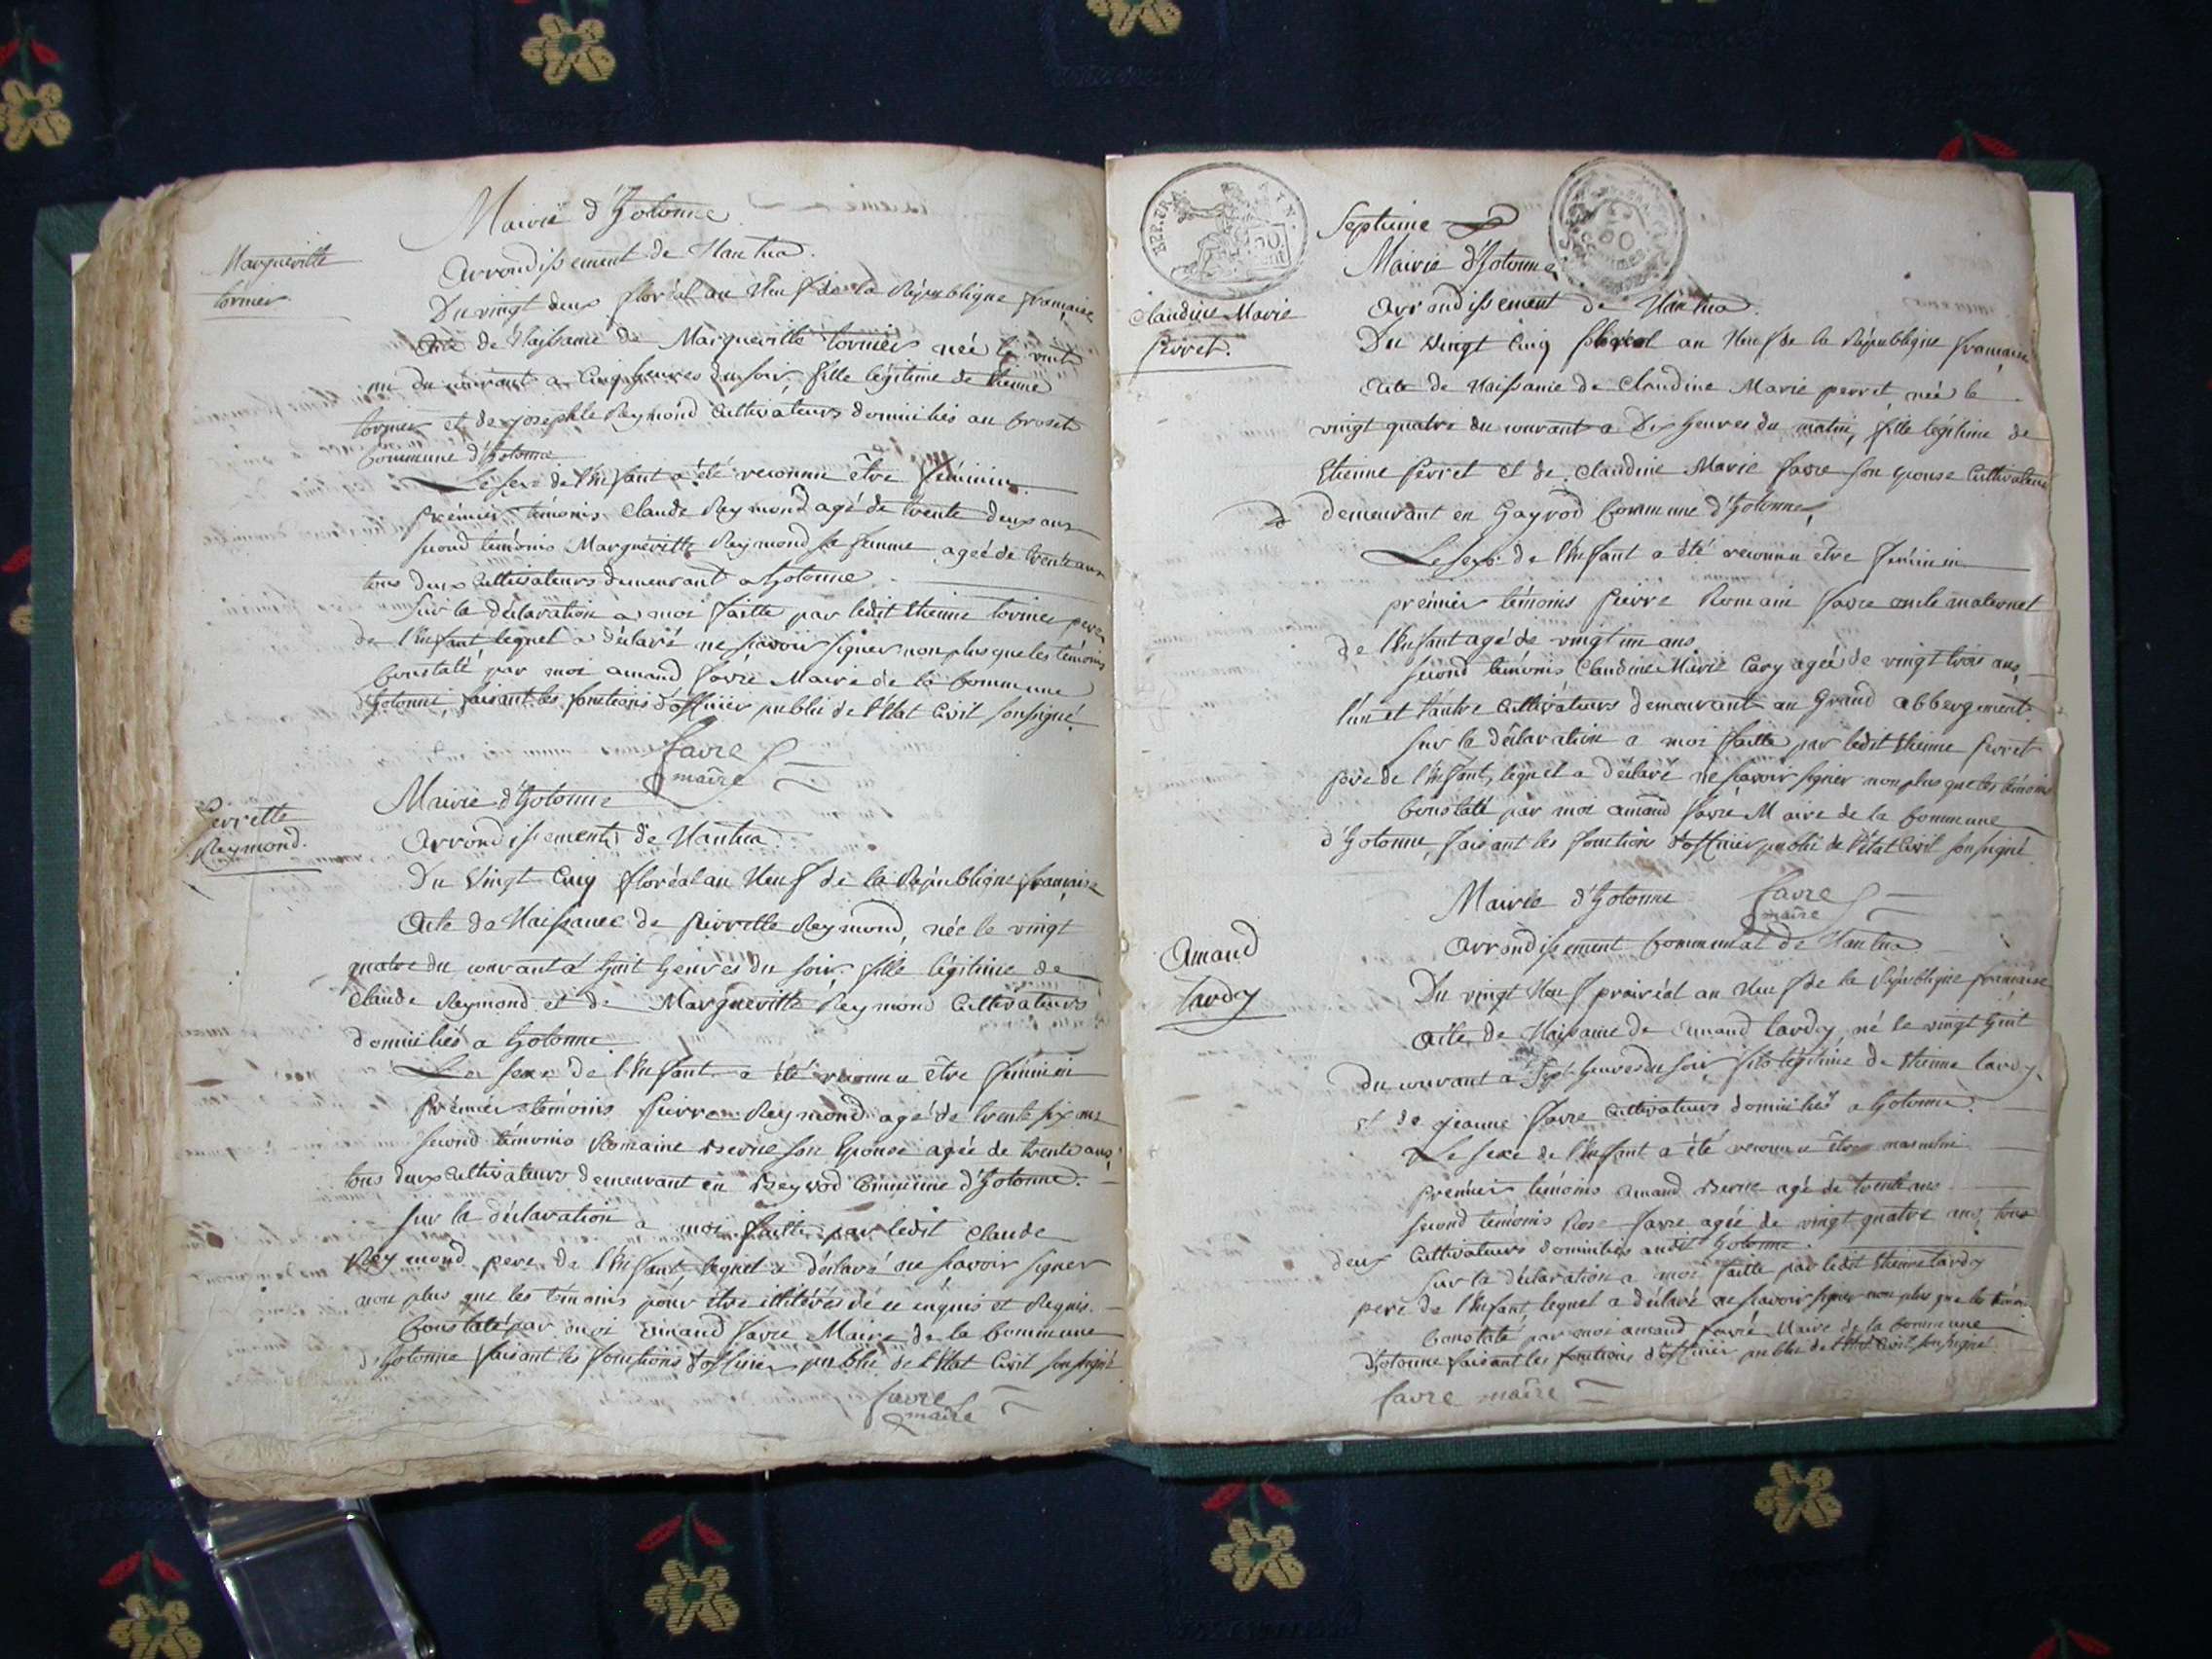 Mairie d'hotonne
arrondissement de Nantua.
Margueritte
tornier
Du vingt deux floréal an Neuf de la République française
acte de Naissance de Margueritte tornier née le vint
un du courant a Cinq heures du soir fille légitime de Etienne
tornier et de josephte Reymond Cultivateurs domiciliés au
Commune d'hotonne
Le sexe de l'Enfant a été reconnu être féminin.
Prémier témoins Claude Reymond agé de trente deux ans
second temoins Margueritte Reymond sa femme agée de trente ans
tous deux Cultivateurs demeurant a hotonne
Sur la déclaration a moi faitte par ledit Etienne tornier pere
de l'Enfant lequel a déclaré ne scavoir signer non plus que les témoins
Constaté par moi amand favre Maire de la Commune
d'hotonne, faisant les fonctions d'officier public de l'Etat Civil soussigné.
favre
maire
Perrette
Reymond.
Mairie d'hotonne
arrondissement de Nantua.
Du Vingt Cinq floréal an Neuf de la République française
acte de Naissance de pierrette Reymond, née le vingt
quatre du courant a huit heures du soir fille légitime de
Claude Reymond et de Margueritte Reymond Cultivateurs
domiciliés a hotonne
Le sexe de l'Enfant a été reconnu être féminin
Prémier témoins pierre Reymond agé de trente six ans
second témoins Romaine Berne son Epouse agée de trente ans,
tous deux Cultivateurs demeurant en Commune d'hotonne.
Sur la déclaration a moi faitte par ledit Claude
Reymond pere de l'Enfant lequel a déclaré ne scavoir signer
non plus que les témoins pour être illitérés de ce enquis et Requis.
Constaté par moi amand favre Maire de la Commune
d'hotonne faisant les fonctions d'officier public de l'Etat Civil soussigné
favre
maire
REP. FRA.
50
cent
Septieme
Mairie d'hotonne
arrondissement de Nantua.
Claudine Marie
Perret.
Du Vingt Cinq floréal an Neuf de la République française
acte de Naissance de Claudine Marie perret, née le
vingt quatre du courant a Dix heures du matin, fille légitime de
Etienne Perret et de Claudine Marie favre son epouse Cultivateurs
demeurant en Commune d'hotonne,
Le sexe de l'Enfant a été reconnu être féminin
prémier témoins pierre Romain favre oncle maternel
de l'Enfant agé de vingt un ans
second temoins Claudine Marie Cary agée de vingt trois ans,
l'un et l'autre Cultivateurs demeurant au Grand abbergement.
Sur la déclaration a moi faitte par ledit Etienne Perret
pere de l'Enfant, lequel a déclaré ne scavoir signer non plus que les témoins
Constaté par moi amand favre Maire de la Commune
d'hotonne, faisant les fonctions d'officier public de l'état Civil soussigné
favre
maire
Mairie d'hotonne
arrondissement Communal de Nantua
Amand
tardy
Du vingt Neuf prairéal an Neuf de la République française
acte de Naissance de amand tardy, né le vingt huit
du courant a sept heures du soir fils légitime de Etienne tardy
et de jeanne favre Cultivateurs domiciliés a hotonne.
Le sexe de l'Enfant a été reconnu être masculin
prémier temoins amand Berne agé de trente ans
second temoins Rose favre agée de vingt quatre ans, tous
deux Cultivateurs domiciliés audit hotonne.
Sur la déclaration a moi faitte par ledit Etienne tardy
pere de l'Enfant, lequel a déclaré ne scavoir signer non plus que les témoins
Constaté par moi amand favre Maire de la Commune
d'hotonne faisant les fonctions d'officier public de l'Etat Civil soussigné
favre maire